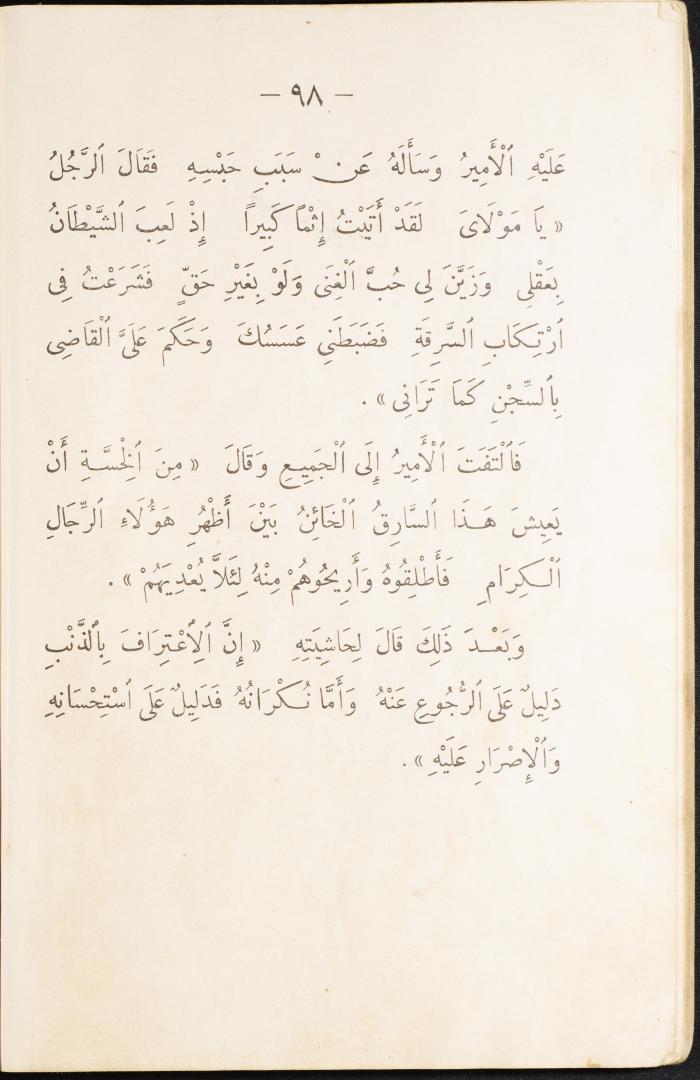 — ٩٨ —
عَلَيْهِ ٱلْأَمِيرُ وَسَأَلَهُ عَنْ سَبَبِ حَبْسِهِ فَقَالَ ٱلرَّجُلُ
« يَا مَوْلَاىَ لَقَدْ أَتَيْتُ إِثْمًا كَبِيرًا إِذْ لَعِبَ ٱلشَّيْطَانُ
بِعَقْلِى وَزَيَّنَ لِى حُبَّ ٱلْغِنَى وَلَوْ بِغَيْرِ حَقٍّ فَشَرَعْتُ فِى
ٱرْتِكَابِ ٱلسَّرِقَةِ فَضَبَطَنِى عَسَسُكَ وَحَكَمَ عَلَىَّ ٱلْقَاضِى
بِٱلسِّجْنِ كَمَا تَرَانِى » .
فَٱلْتَفَتَ ٱلْأَمِيرُ إِلَى ٱلْجَمِيعِ وَقَالَ « مِنَ ٱلْخِسَّةِ أَنْ
يَعِيشَ هَذَا ٱلسَّارِقُ ٱلْخَائِنُ بَيْنَ أَظْهُرِ هَؤُلَاءِ ٱلرِّجَالِ
ٱلْكِرَامِ فَأَطْلِقُوهُ وَأَرِيحُوهُمْ مِنْهُ لِئَلَّا يُعْدِيَهُمْ » .
وَبَعْدَ ذَلِكَ قَالَ لِحَاشِيَتِهِ « إِنَّ ٱلِٱعْتِرَافَ بِٱلذَّنْبِ
دَلِيلٌ عَلَى ٱلرُّجُوعِ عَنْهُ وَأَمَّا نُكْرَانُهُ فَدَلِيلٌ عَلَى ٱسْتِحْسَانِهِ
وَٱلْإِصْرَارِ عَلَيْهِ » .